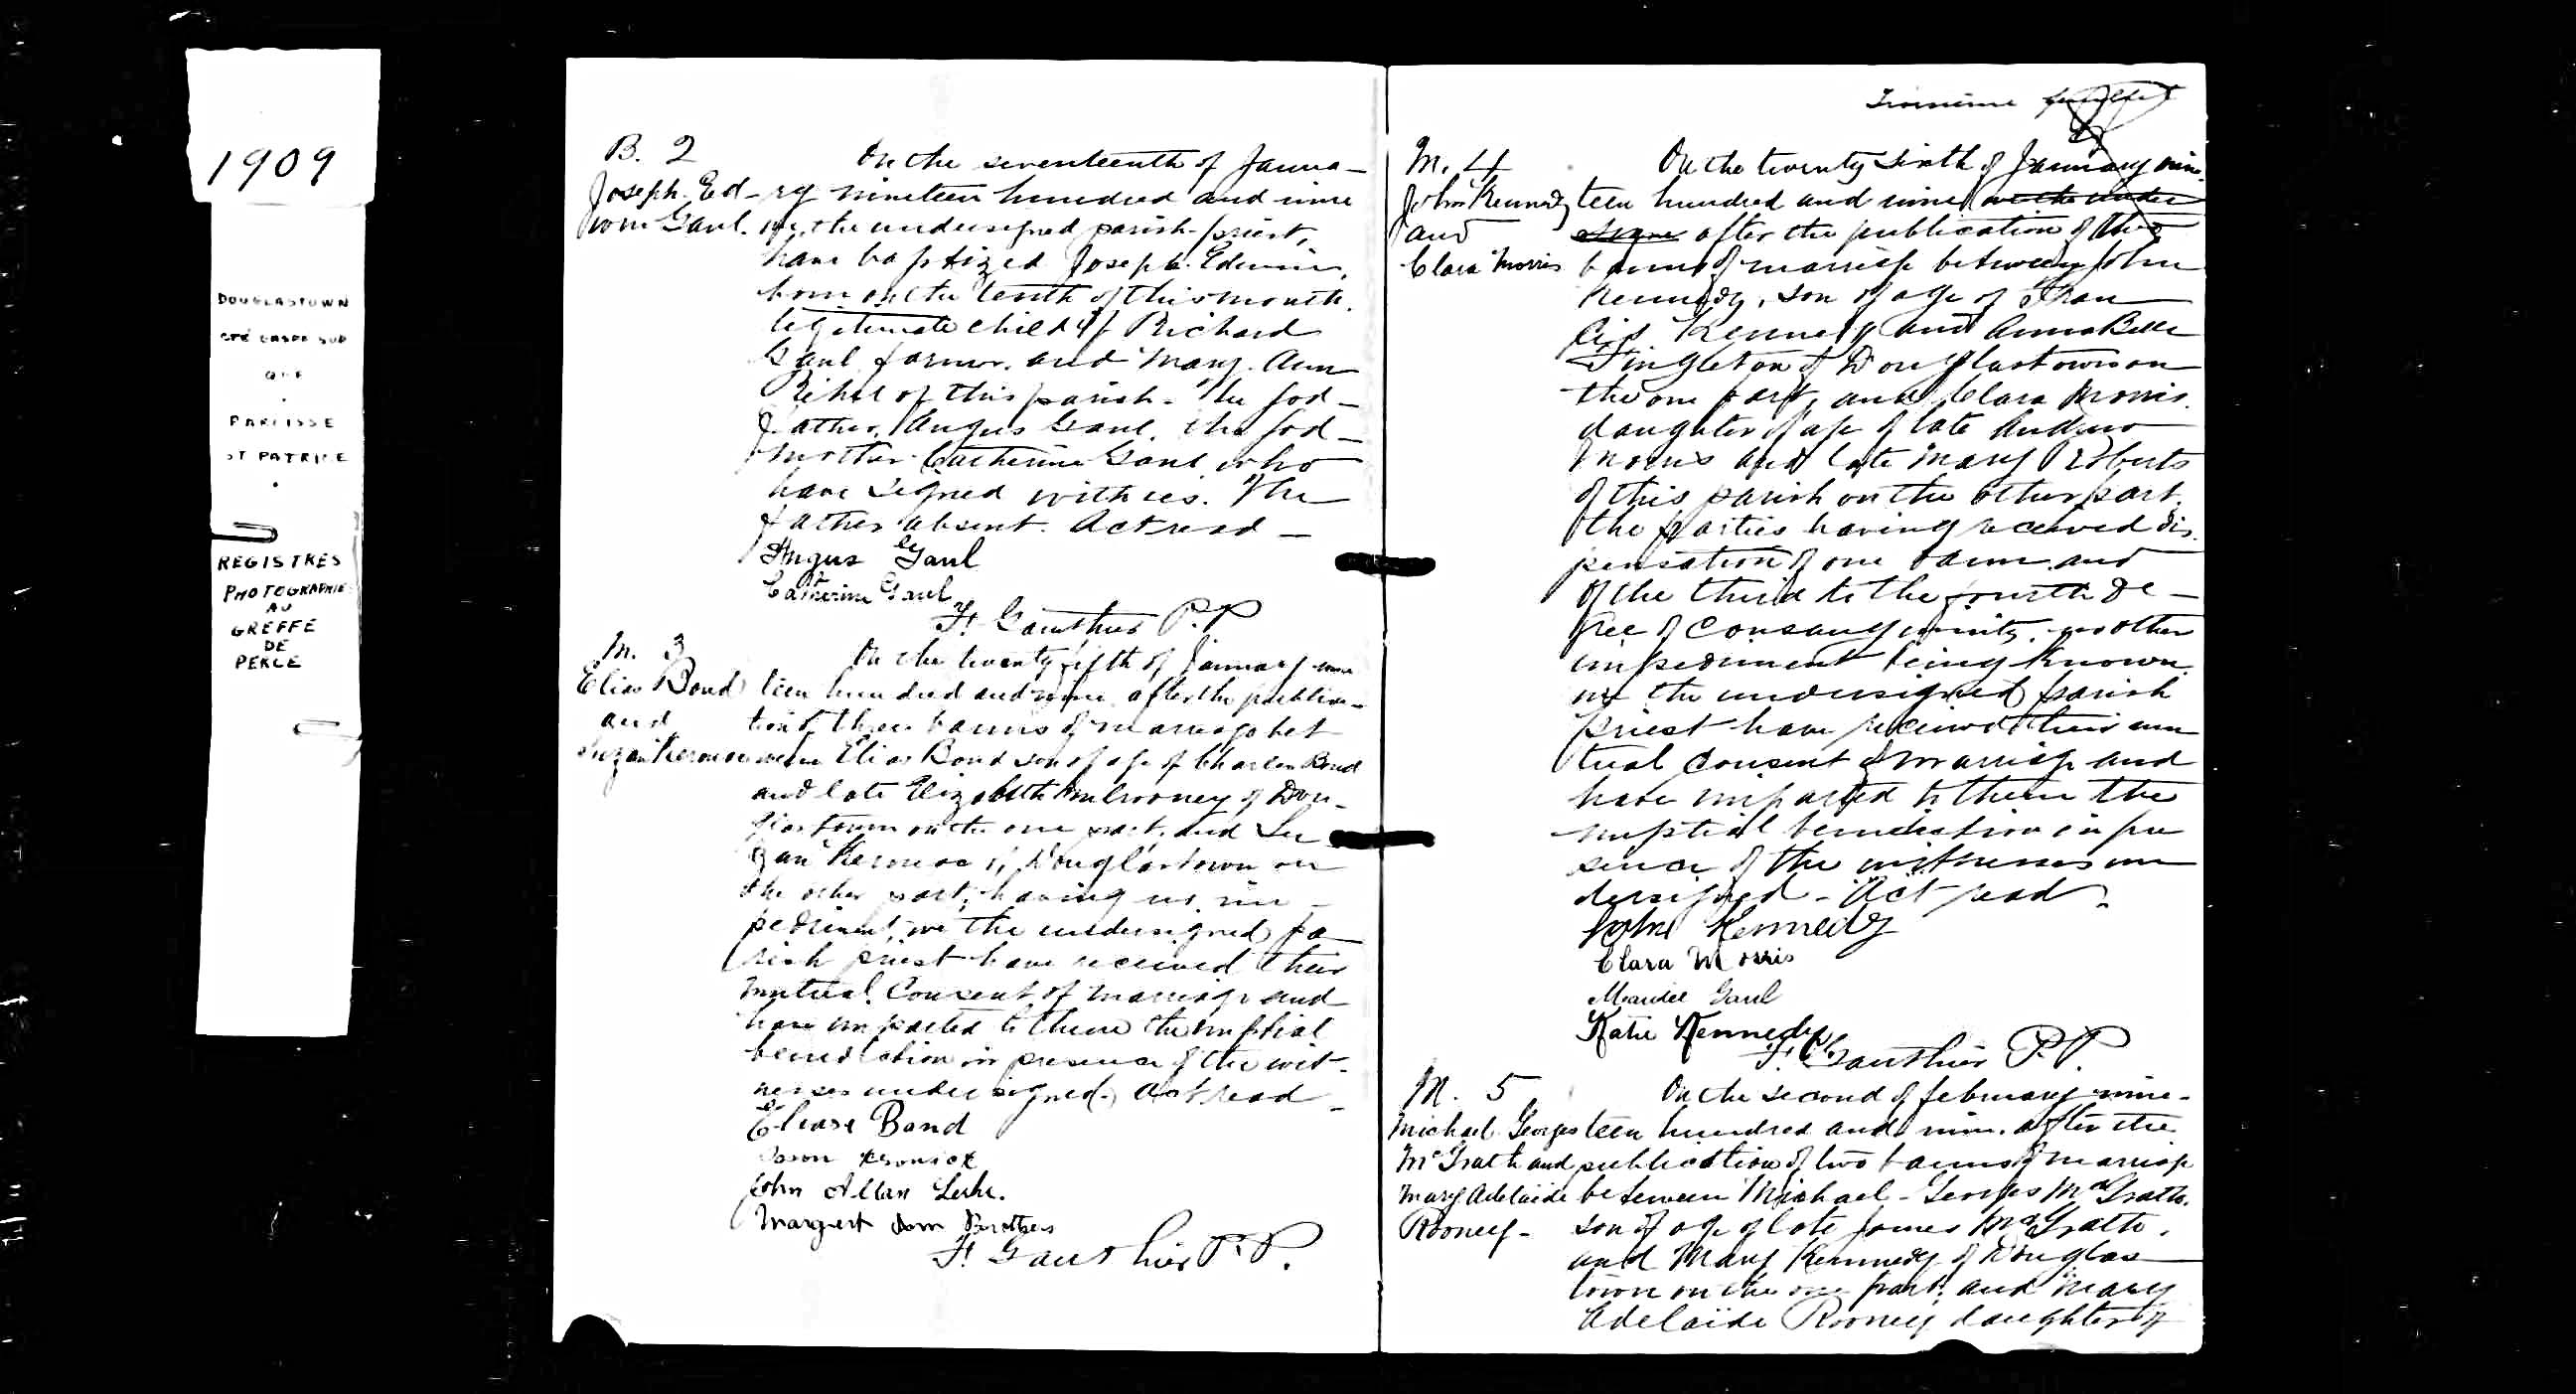 1909
DOUGLASTOWN
CTÉ GASPÉ SUD
QUE
PAROISSE
ST PATRICE
REGISTRES
PHOTOGRAPHIÉ
AU
GREFFE
DE
PERCE
B. 2
Joseph. Ed-
win Gaul.
On the seventeenth of Janua-
ry nineteen hundred and nine
we, the undersigned parish-priest,
have baptized Joseph. Edwin,
born on the tenth of this month.
legitimate child of Richard
Gaul farmer. and Mary. Ann
of this parish. The god-
father, Angus Gaul. the god-
mother Catherine Gaul who
have signed with us. The
father absent. Act read -
Angus Gaul
Catherine Gaul
F. Gauthier P.P
M. 3
Elias Bond
and
On the twenty fifth of January nine
teen hundred and nine after the publica-
tion of three banns of marriage bet
ween Elias Bond son of age of Charles Bond
and late Elizabeth Mulrooney of Dou-
glastown on the one part, and Su
zan of Douglastown on
the other part, having no im-
pediment, we the undersigned pa
rish priest have received their
mutual Consent of marriage and
have imparted to them the nuptial
benediction in presence of the wit-
nesses undersigned. Act read -
Eliase Bond
John Allan
Margert Ann Brothers
F. Gauthier P.P.
Troisième feuillet
M. 4
John Kennedy
and
Clara Morris
On the twenty sixth of January nine-
teen hundred and nine we the under
signe after the publication of two
banns of marriage between John
Kennedy, son of age of Fran
cis Kennedy and Anna Belle
Singleton of Douglastown on
the one part, and Clara Morris.
daughter of age of late Andrew
Morris and late Mary Roberts
of this parish on the other part.
the parties having received dis-
pensation of one bann and
of the third to the fourth de-
gree of Consanguinity. no other
impediment being known
we the undersigned parish
priest have received their mu
tual Consent of marriage and
have imparted to them the
nuptial benediction in pre
sence of the witnesses un
dersigned - Act read -
John Kennedy
Clara Morris
Gaul
Katie Kennedy
F. Gauthier P.P.
M. 5
Michael Georges
McGrath and
Mary Adelaïde
Rooney -
On the second of february nine-
teen hundred and nine. after the
publication of two banns of marriage
between Michael-Georges McGrath.
son of age of late James McGrath.
and Mary Kennedy of Douglas
town on the one part, and Mary
Adelaïde Rooney daughter of